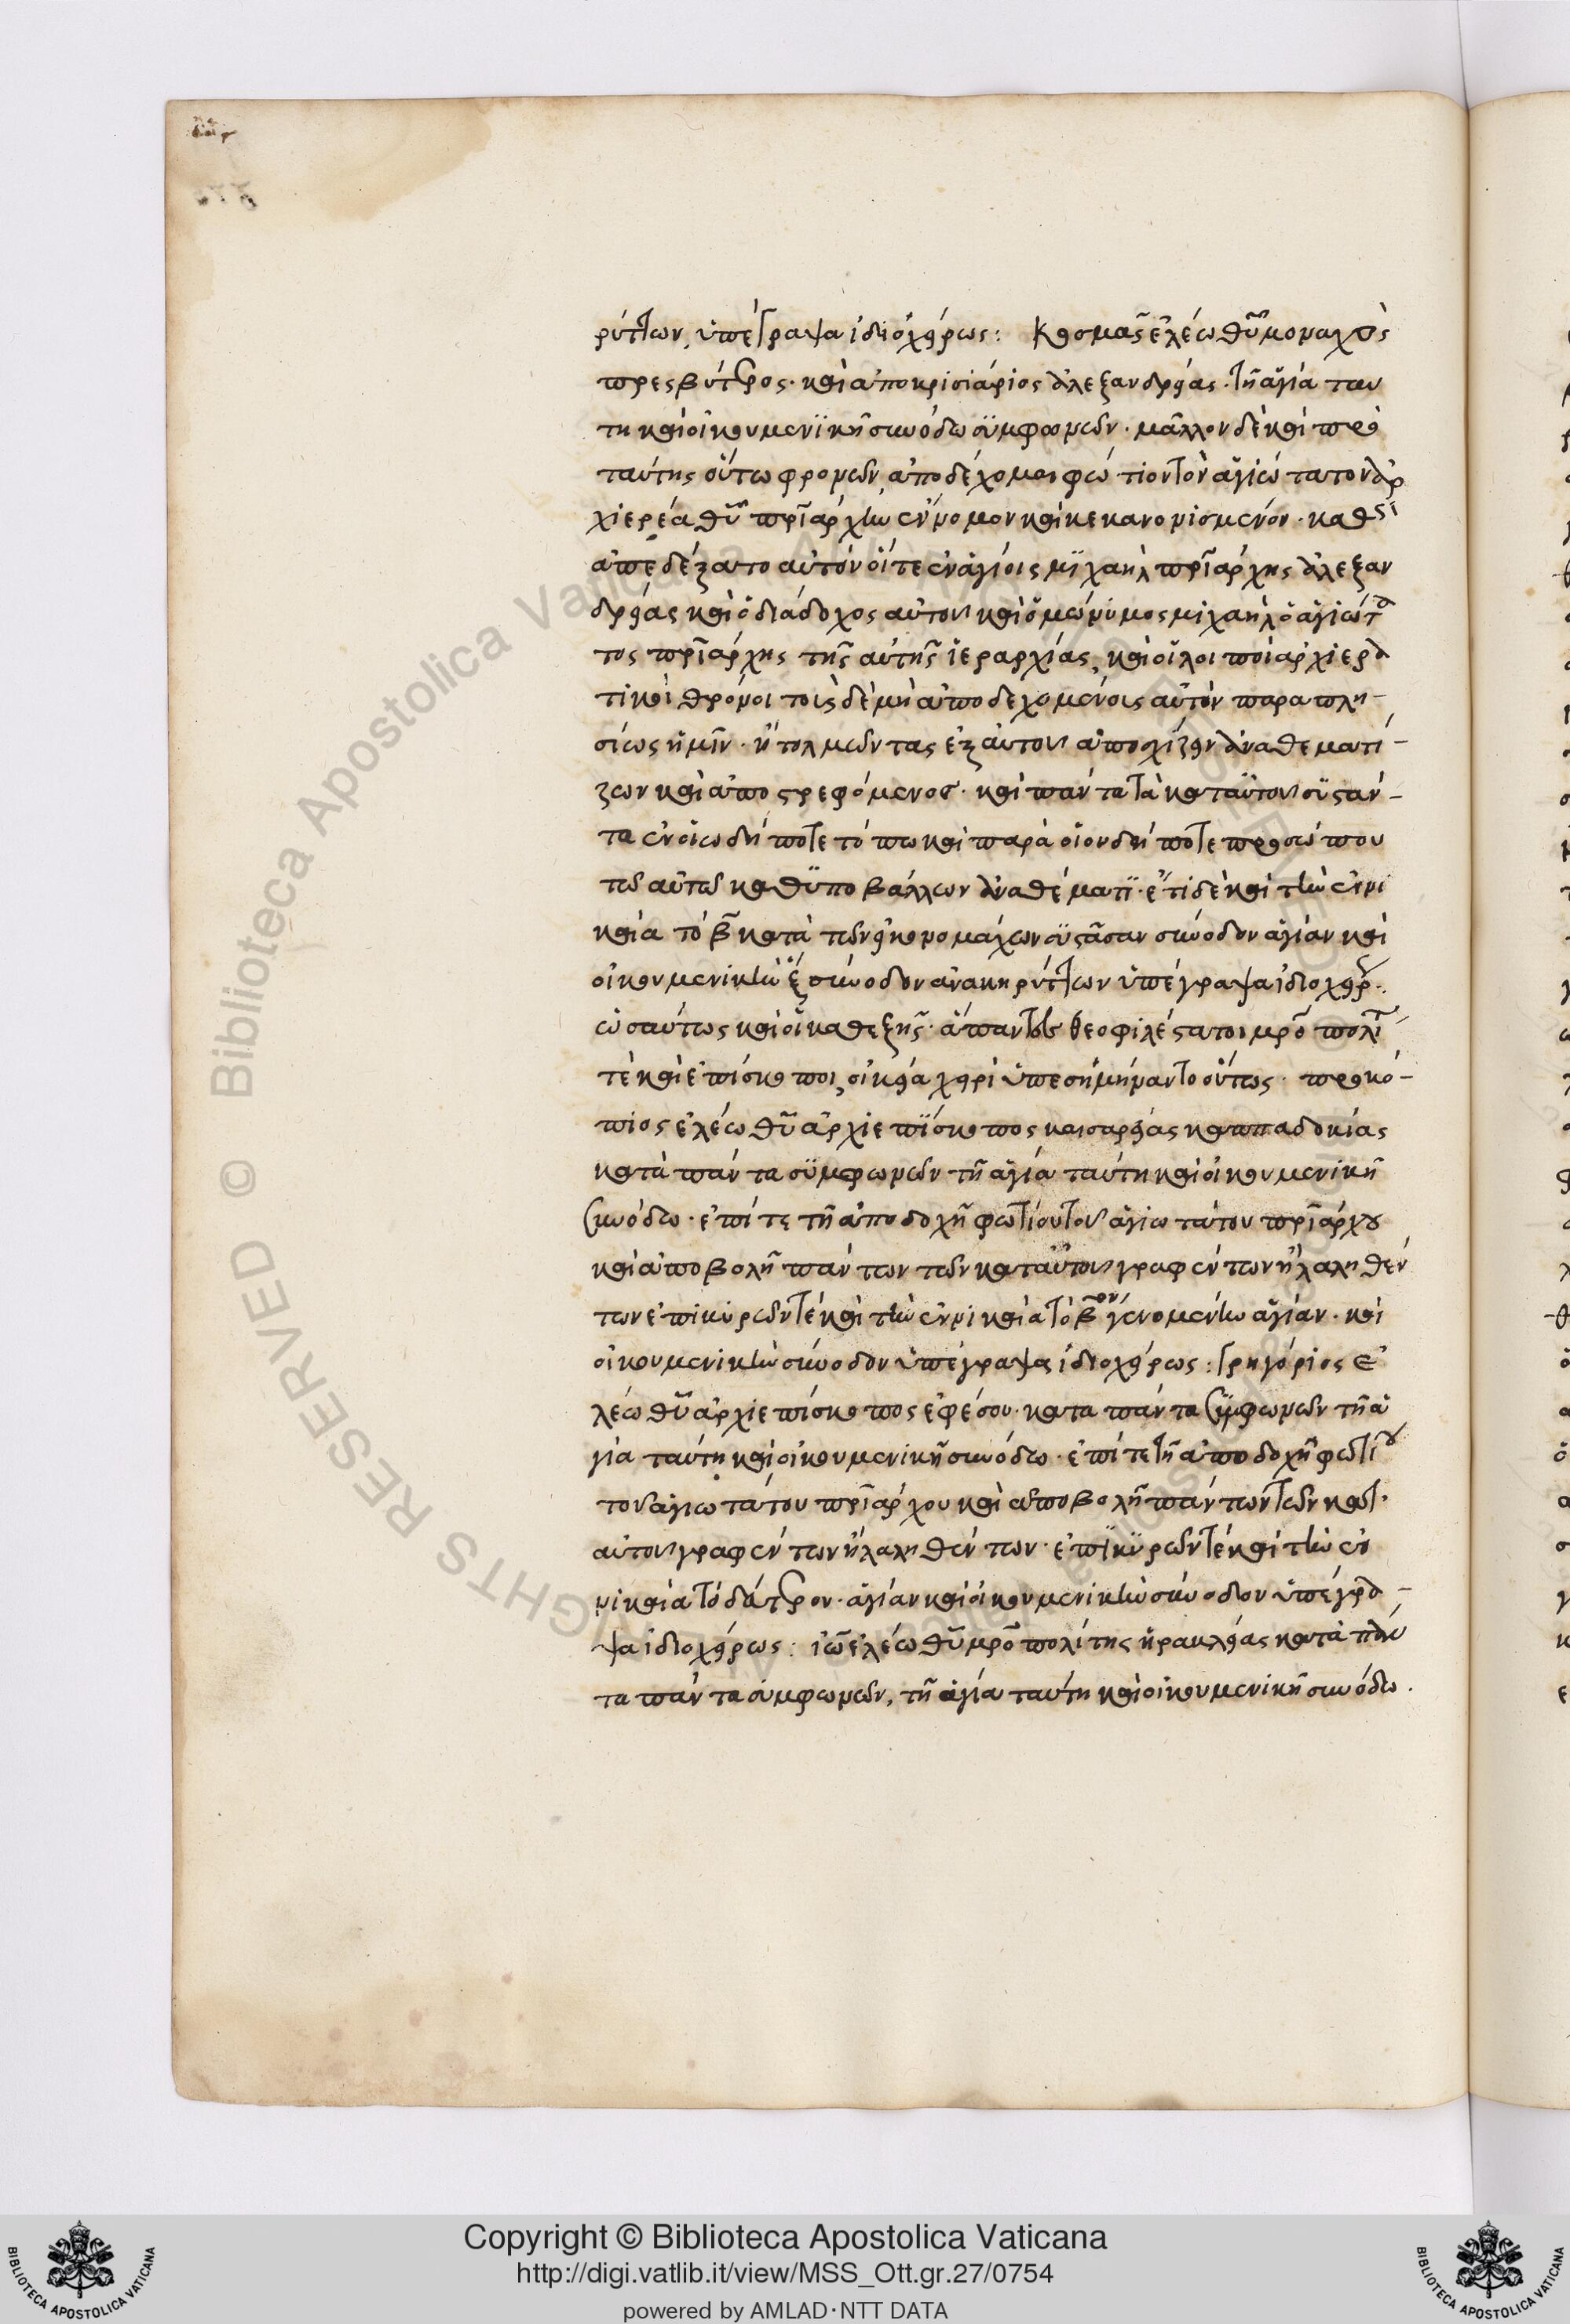 ρύττων, ὑπέγραψα ἰδιοχείρως: Κοσμᾶς ἐλέω θῦ μοναχὸς
πρεσβύτερος· καὶ ἀποκρισιάριος ἀλεξανδρείας· τῆ ἁγία ταυ
τη καὶ οἰκουμενϊκῆ συνόδω σϋμφωνῶν· μᾶλλον δὲ καὶ πρὸ
ταύτης οὕτω φρονῶν, ἀποδέχομαι φώτιον τὸν ἁγιώτατον ἀρ
χιερέα θῦ πρϊάρχην ἔννομον καὶ κεκανονισμένον· καθὼς
ἀπεδέξατο αὐτὸν οἵ τε ἐν ἁγίοις μϊχαηλ πρϊάρχης ἀλεξαν
δρείας καὶ ὁ διάδοχος αὐτοῦ καὶ ὁμώνυμος μιχαὴλ ὁ ἁγιώτα
τος πρϊάρχης τῆς αὐτῆς ἱεραρχίας, καὶ οἱ λοιποὶ ἀρχιερα
τικοὶ θρόνοι τοὶς δὲ μὴ ἀποδεχομένοις αὐτὸν παραπλη-
σίως ἡμῖν· ἢ τολμῶντας ἐξ αὐτοῦ ἀποσχίζειν ἀναθεματί-
ζων καὶ ἀποστρεφόμενος· καὶ πάντα τὰ κατ αὐτοῦ σϋστάν-
τα ἐν οἵω δήποτε τόπω καὶ παρὰ οἱουδήποτε προσώπου
τῶ αὐτῶ καθϋποβάλλων ἀναθέματϊ· ἔτι δὲ καὶ τὴν ἐν νι
καία τὸ β̅ κατὰ τῶν εἰκονομάχων σϋστᾶσαν σύνοδον ἁγίαν καὶ
οἰκουμενικὴν ἕ̅ξ σύνοδον ἀνακηρύττων ὑπέγραψα ἰδιοχείρ·
ὡσαύτως καὶ οἱ καθεξῆς· ἅπαντες θεοφιλέστατοι μρ̅ο πολῖτ
τὲ καὶ ἐπίσκοποι, οἰκεία χειρὶ ὑπεσημήναντο οὕτως· προκό-
πιος ἐλέω θῦ ἀρχιεπϊσκοπος καισαρείας καππαδοκίας
κατὰ πάντα σϋμφωνῶν τῆ ἁγία ταύτη καὶ οἰκουμενικῆ
συνόδω· ἐπί τε τῆ ἀποδοχῆ φωτίου τοῦ ἁγιωτάτου πρϊάρχου
καὶ ἀποβολῆ πάντων τῶν κατ αὐτοῦ γραφέντων ἢ λαληθέν
των ἐπικυρῶν τὲ καὶ τὴν ἐν νικαία τὸ β̅ον γενομένην ἁγίαν· καὶ
οἰκουμενικὴν σύνοδον ὑπέγραψα ἰδιοχείρως: Γρηγόριος ἐ
λέω θῦ ἀρχιεπίσκοπος ἐφέσου· κατα πάντα σϋμφωνῶν τῆ ἁ
γία ταύτη καὶ οἰκουμενικῆ συνόδω· ἐπί τε τῆ ἀποδοχῆ φωτίου
τοῦ ἁγιωτάτου πρϊάρχου καὶ ἀποβολῆ πάντων τῶν κατ·
αὐτοῦ γραφέντων ἢ λαληθέντων· ἐπϊκϋρῶν τὲ καὶ τὴν ἐν
νικαία τὸ δεύτερον· ἁγίαν καὶ οἰκουμενικὴν σύνοδον ὑπέγρα-
ψα ἰδιοχείρως: ἰω̅ ἐλέω θῦ μρ̅ο πολίτης ἡρακλείας κατὰ πάν
τα πάντα συμφωνῶν, τῆ ἁγία ταύτη καὶ οἰκουμενικῆ συνόδω.
Copyright © Biblioteca Apostolica Vaticana
http://digi.vatlib.it/view/MSS_Ott.gr.27/0754
powered by AMLAD·NTT DATA